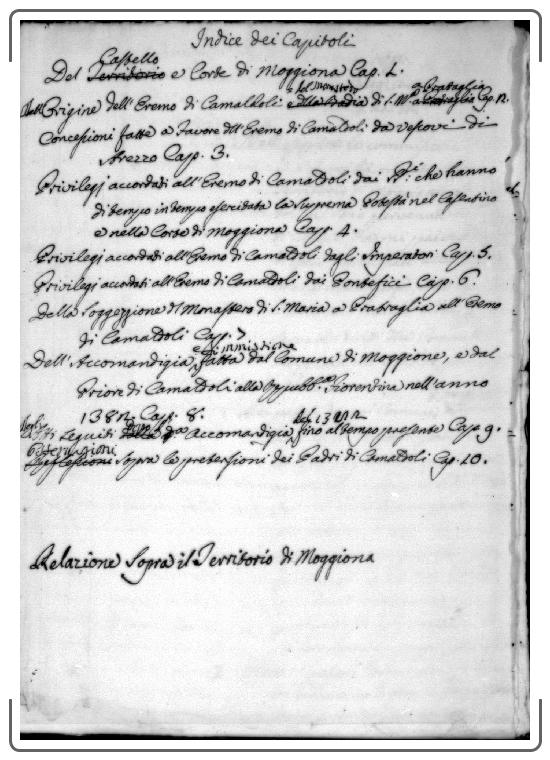 Indice dei Capitoli
Castello
Del Territorio e Corte di Moggiona Cap. 1.
del Monastero a Prataglia
Dell' Origine dell' Eremo di Camaldoli e della Badia di S. Mª a Prataglia Cap. 2.
Concessioni fatte a favore dell Eremo di Camaldoli da Vescovi di
Arezzo Cap. 3.
Privilegj accordati all' Eremo di Camaldoli dai che hanno
di tempo in tempo esercitata la Suprema Potestà nel Casentino
e nella Corte di Moggiona Cap. 4.
Privilegj accordati all' Eremo di Camaldoli dagli Imperatori Cap. 5.
Privilegj accordati all' Eremo di Camaldoli dai Pontefici Cap. 6.
Della Soggezzione del Monastero di S. Maria a Prataglia all' Eremo
di Camaldoli Cap. 7
e Summissione
Dell' Accomandigia fatta dal Comune di Moggione, e dal
Priore di Camaldoli alla Repubb.ca Fiorentina nell' anno
1382. Cap. 8.
del 1382
Degli Atti seguiti dopo la dª Accomandigia fino al tempo presente Cap. 9.
Osservazioni
Riflessioni Sopra le pretensioni dei Padri di Camaldoli Cap. 10.
Relazione Sopra il Territorio di Moggiona